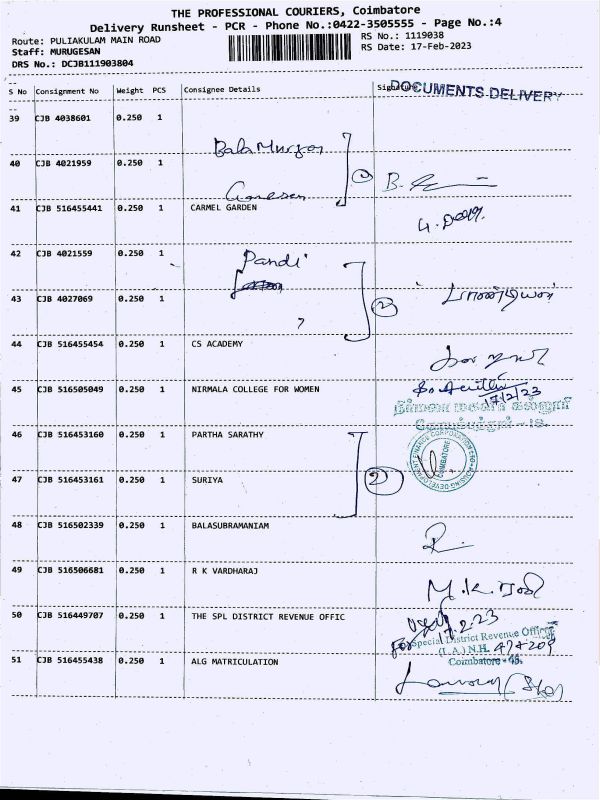 THE PROFESSIONAL COURIERS, Coimbatore
Delivery Runsheet - PCR - Phone No.:0422-3505555 - Page No.:4
Route: PULIAKULAM MAIN ROAD
RS No.: 1119038
Staff: MURUGESAN
RS Date: 17-Feb-2023
DRS No.: DCJB111903804
S No Consignment No Weight PCS Consignee Details Signature
DOCUMENTS DELIVERY
39 CJB 4038601 0.250 1
Bala Murgan
40 CJB 4021959 0.250 1
Ganesan
41 CJB 516455441 0.250 1 CARMEL GARDEN
42 CJB 4021559 0.250 1
Pandi
43 CJB 4027069 0.250 1
பாண்டியன்
44 CJB 516455454 0.250 1 CS ACADEMY
45 CJB 516505049 0.250 1 NIRMALA COLLEGE FOR WOMEN
17/2/23
நிர்மலா மகளிர் கல்லூரி
46 CJB 516453160 0.250 1 PARTHA SARATHY
HOUSING DEVELOPMENT FINANCE CORPORATION
COIMBATORE
47 CJB 516453161 0.250 1 SURIYA
2
48 CJB 516502339 0.250 1 BALASUBRAMANIAM
49 CJB 516506681 0.250 1 R K VARDHARAJ
50 CJB 516449707 0.250 1 THE SPL DISTRICT REVENUE OFFIC
17.2.23
For Special District Revenue Officer
(L.A.) N.H. 47+209
Coimbatore - 18.
51 CJB 516455438 0.250 1 ALG MATRICULATION